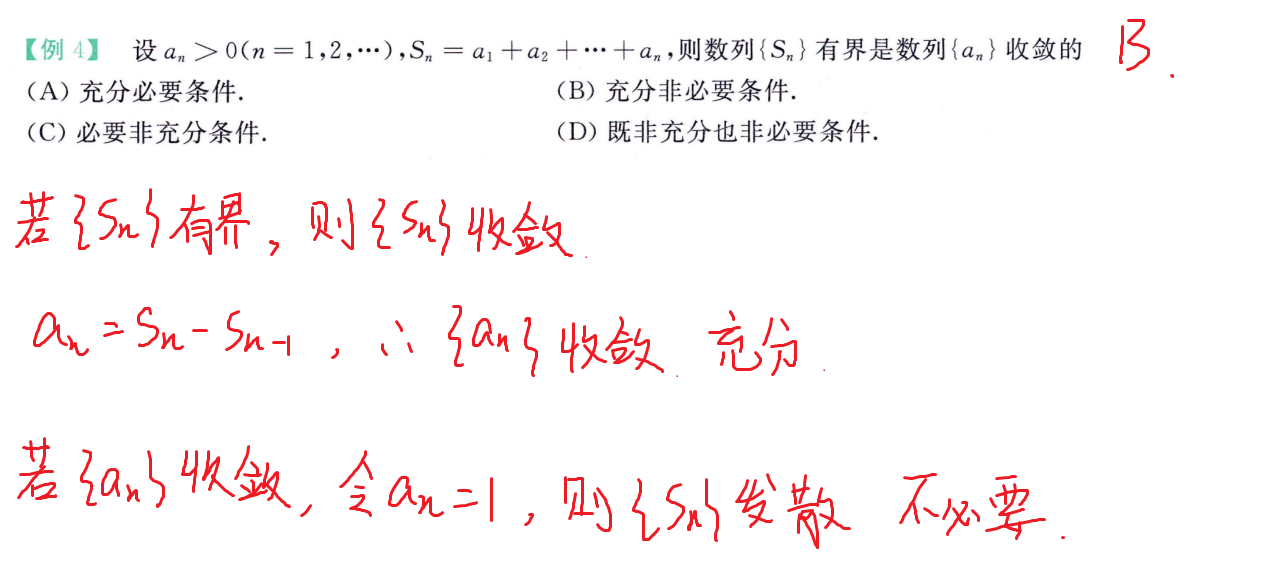 【例 4】 设 aₙ > 0(n = 1,2,⋯),Sₙ = a₁ + a₂ + ⋯ + aₙ,则数列{Sₙ}有界是数列{aₙ}收敛的 B.
(A) 充分必要条件. (B) 充分非必要条件.
(C) 必要非充分条件. (D) 既非充分也非必要条件.
若{Sₙ}有界, 则{Sₙ}收敛.
aₙ = Sₙ - Sₙ₋₁ , ∴ {aₙ}收敛. 充分.
若{aₙ}收敛, 令aₙ=1, 则{Sₙ}发散 不必要.